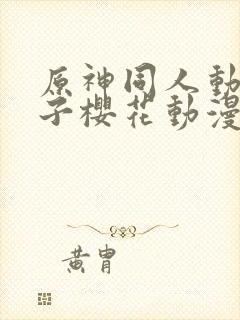 原神同人動
子櫻花動漫
黃胄